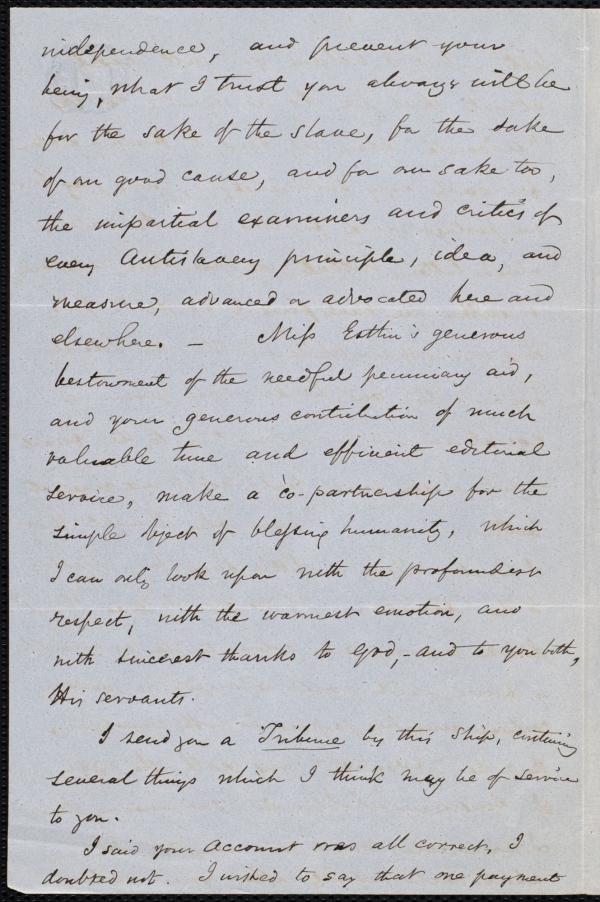 independence, and prevent your
being, what I trust you always will be
for the sake of the slave, for the sake
of our good cause, and for our sake too,
the impartial examiners and critics of
every Antislavery principle, idea, and
measure, advanced or advocated here and
elsewhere. — Miss Estlin's generous
bestowment of the needful pecuniary aid,
and your generous contribution of much
valuable time and efficient editorial
service, make a co-partnership for the
simple object of blessing humanity, which
I can only look upon with the profoundest
respect, with the warmest emotion, and
with sincerest thanks to God, - and to you both,
His servants.
I send you a Tribune by this ship, containing
several things which I think may be of service
to you.
I said your Account was all correct, I
doubted not. I wished to say that one payment